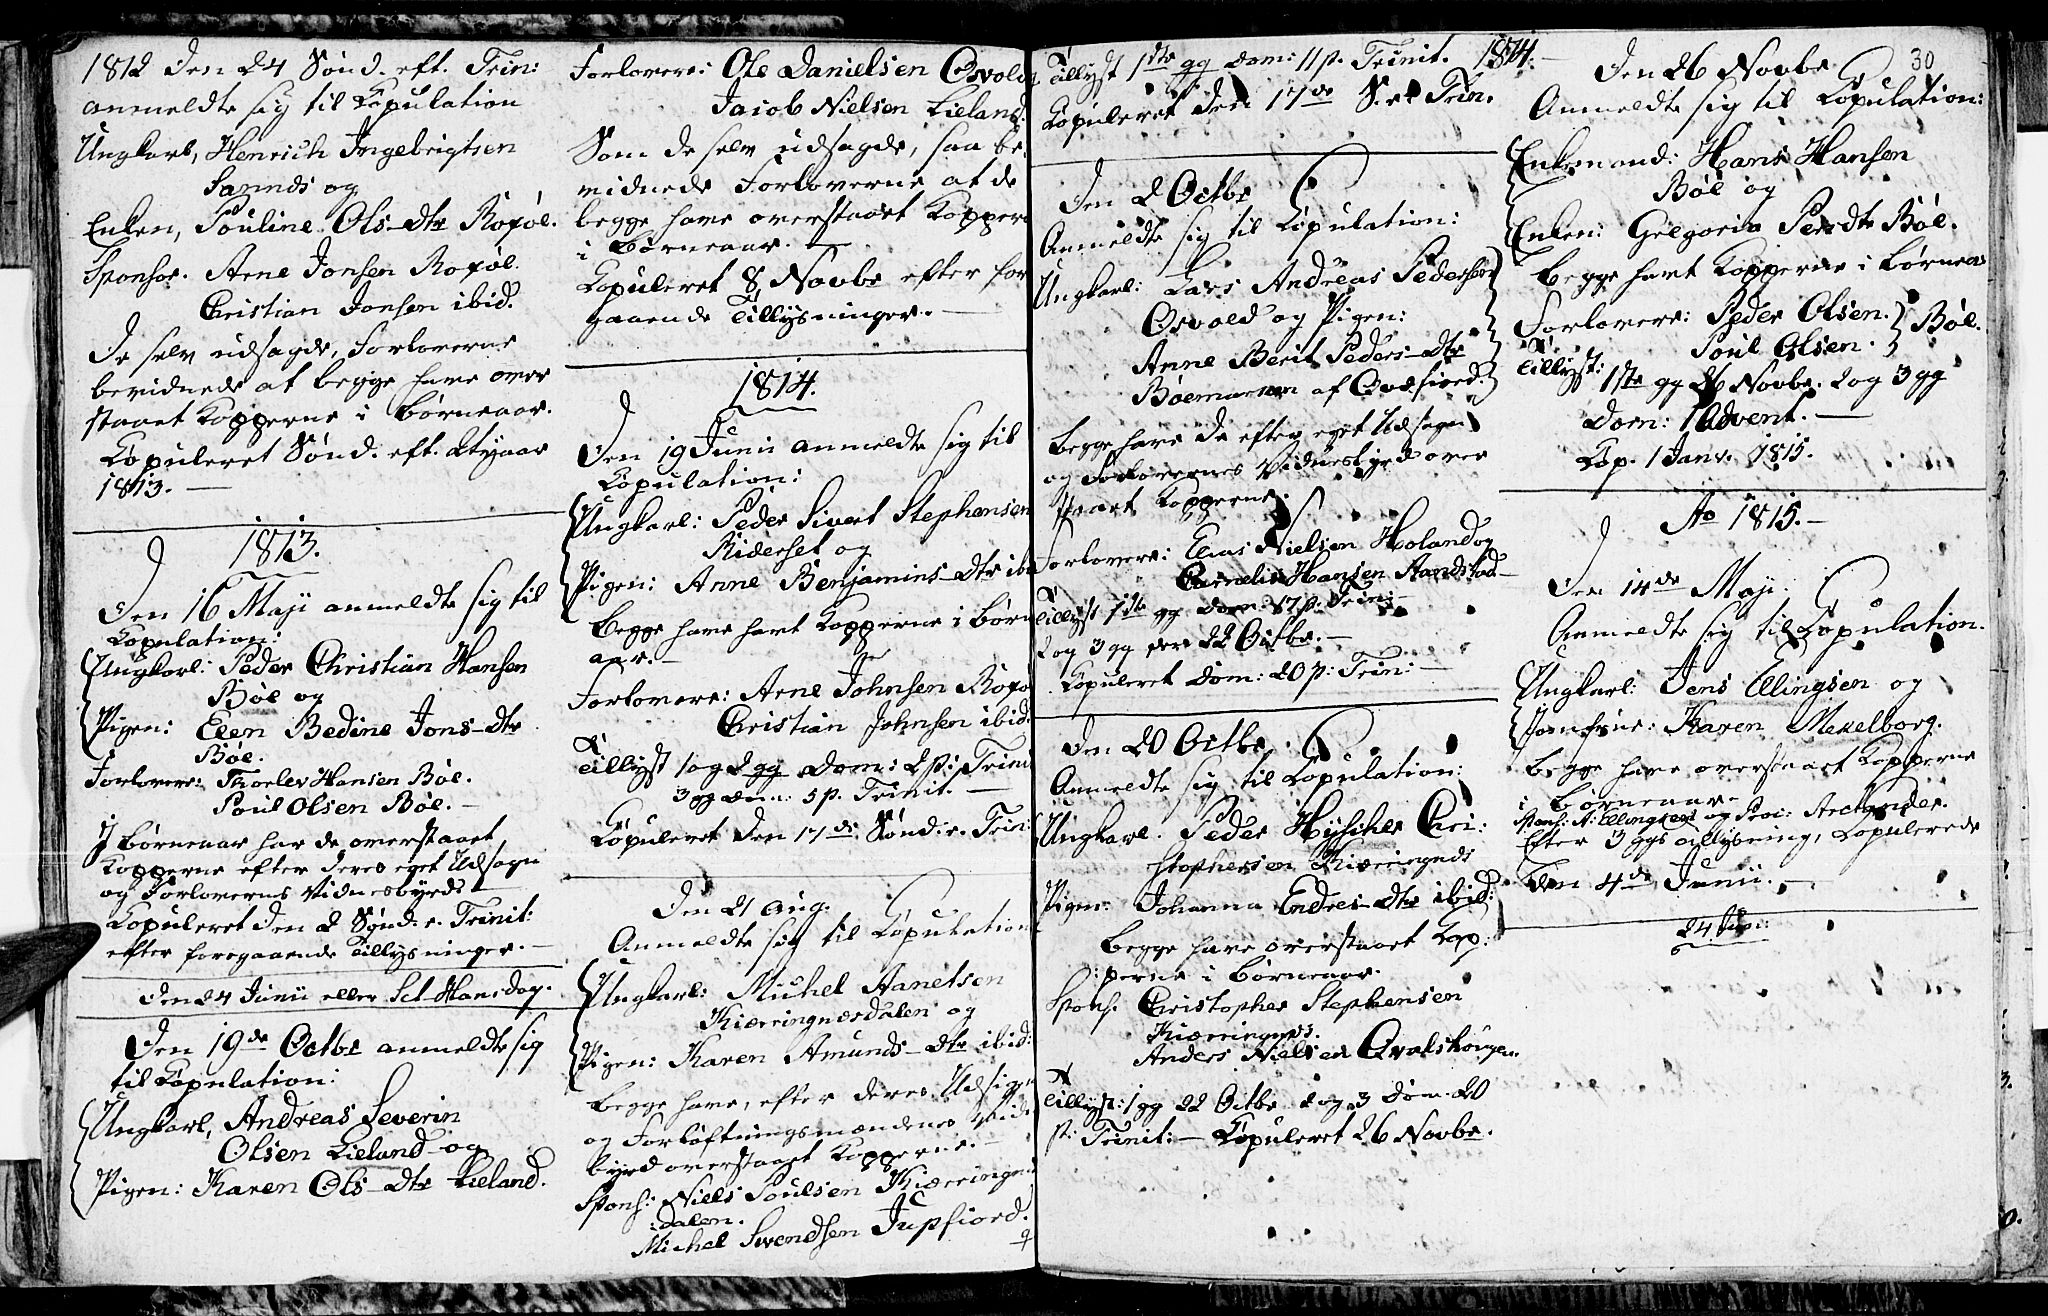 1812 Den 24 Sønd. eft. Trin:
anmeldte sig til Copulation
Ungkarl, Henrich Ingebrigtsen
Sannds og
Enken, Pouline Ols-dtr Roxøl.
Sponsor. Arne Jonsen Roxøl.
Christian Jonsen ibid.
De selv udsagde, Forloverne
bevidnede at begge have over
staaet Kopperne i Børneaar.
Copuleret Sønd. eft. Nytaar
1813.
1813.
Den 16 Maji anmeldte sig til
Copulation:
Ungkarl: Peder Christian Hansen
Bøl og
Pigen: Elen Bedine Jons-dtr
Bøl.
Forlovere: Thorlev Hansen Bøl.
Poul Olsen Bøl.
I Børneaar har de overstaaet
Kopperne efter deres eget Udsagn
og Forlovernes Vidnesbyrd
Copuleret den 2 Sønd. e. Trinit:
efter foregaaende Tillysninger.
Den 24 Junii eller Sct. Hansdag.
Den 19de Octbr anmeldte sig
til Copulation:
Ungkarl, Andreas Severin
Olsen Lieland og
Pigen: Karen Ols-dtr Lieland.
Forlovere: Ole Danielsen Osvold
Jacob Nielsen Lieland.
Som de selv udsagde, saa be-
vidnede Forloverne at de
begge have overstaaet Kopper
i Børneaar.
Copuleret 8 Novbr efter for
gaaende Tillysninger.
1814.
Den 19 Junii anmeldte sig til
Copulation:
Ungkarl: Peder Sivert Stephensen
Riderset og
Pigen: Anne Benjamins-dtr ibi
Begge have havt Kopperne i Børn
aar.
Forlovere: Arne Johnsen Roxø
Christian Johnsen ibid.
Tillyst 1 og 2 gg Dom: 2 p: Trini
3 gg Dom: 5 p. Trinit.
Copuleret den 17de Sønd. e. Trin:
Den 21 Aug.
Anmeldte sig til Copulation
Ungkarl: Michel Aanetsen
Kierringnesdalen og
Pigen: Karen Amunds-dtr ibid:
Begge have, efter deres Udsigen
og Forløftningsmændenes Vid
byrd overstaaet Kopperne.
Spons: Niels Poulsen Kierringnes
:dalen.
Michel Svendsen Jupfiord.
Tillyst 1ste gg Dom: 11 p. Trinit. 1814.
Copuleret den 17de S. e. Trin.
Den 2 Octbr
Anmeldte sig til Copulation:
Ungkarl: Lars Andreas Pedersen
Osvold og Pigen:
Anne Berit Peders-dtr
Bøemarken af Qvæfiord.
Begge have de efter eget Udsagn
og Forlovernes Vidnesbyrd over
staaet Kopperne.
Forlovere: Elias Nielsen Holand og
Cornelius Hansen Aandstad
Tillyst 1ste gg Dom: 17 p. Trin:
2 og 3 gg den 22 Octbr.
Copuleret Dom: 20 p: Trin:
Den 20 Octbr.
Anmeldte sig til Copulation:
Ungkarl. Peder Hyscher Chri:
stophersen Kierringnds
Pigen: Johanna Endres-dtr ibid:
Begge have overstaaet Kop:
:perne i Børneaar.
Spons. Christopher Stephensen
Kierringnds.
Anders Nielsen
Tillyst: 1 gg 22 Octbr 2 og 3 Dom. 20
p: Trinit: — Copuleret 26 Novbr.
30
Den 26 Novbr
Anmeldte sig til Copulation:
Enkemand: Hans Hansen
Bøl og
Enken: Gregoria Peders dtr Bøl.
Begge havt Kopperne i Børneaar
Forlovere: Peder Olsen.
Poul Olsen. Bøl.
Tillyst:
1ste gg 26 Novbr. 2 og 3 gg
Dom: 1 Advent.
Cop. 1 Janv. 1815.
Ao 1815.
Den 14de Maji.
Anmeldte sig til Copulation.
Ungkarl: Jens Ellingsen og
Jomfrue: Karen Mekelborg.
Begge have overstaaet Kopperne
i Børneaar
Spons: A: Ellingsen og Proc: Arctander.
Efter 3 ggs Tillysning, Copulerede
Den 4de Junii.
24 Juni: